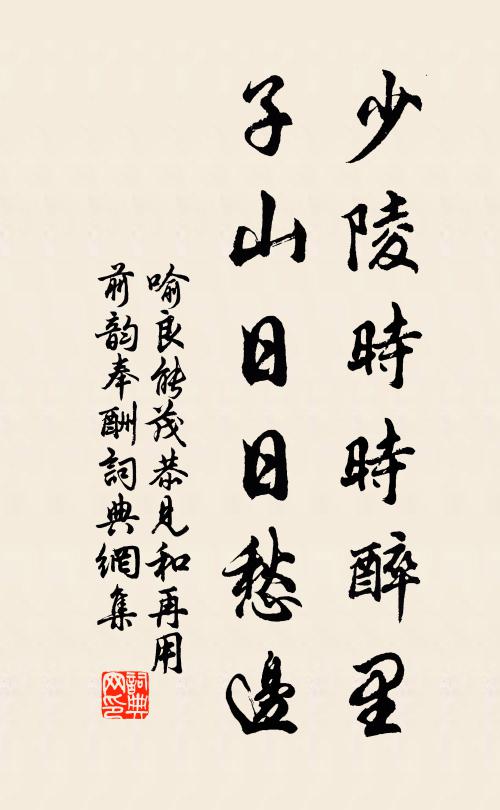 少陵時時醉里
子山日日愁邊
喻良能茂恭見和再用
前韵奉酬詞典網集
詞典
网印